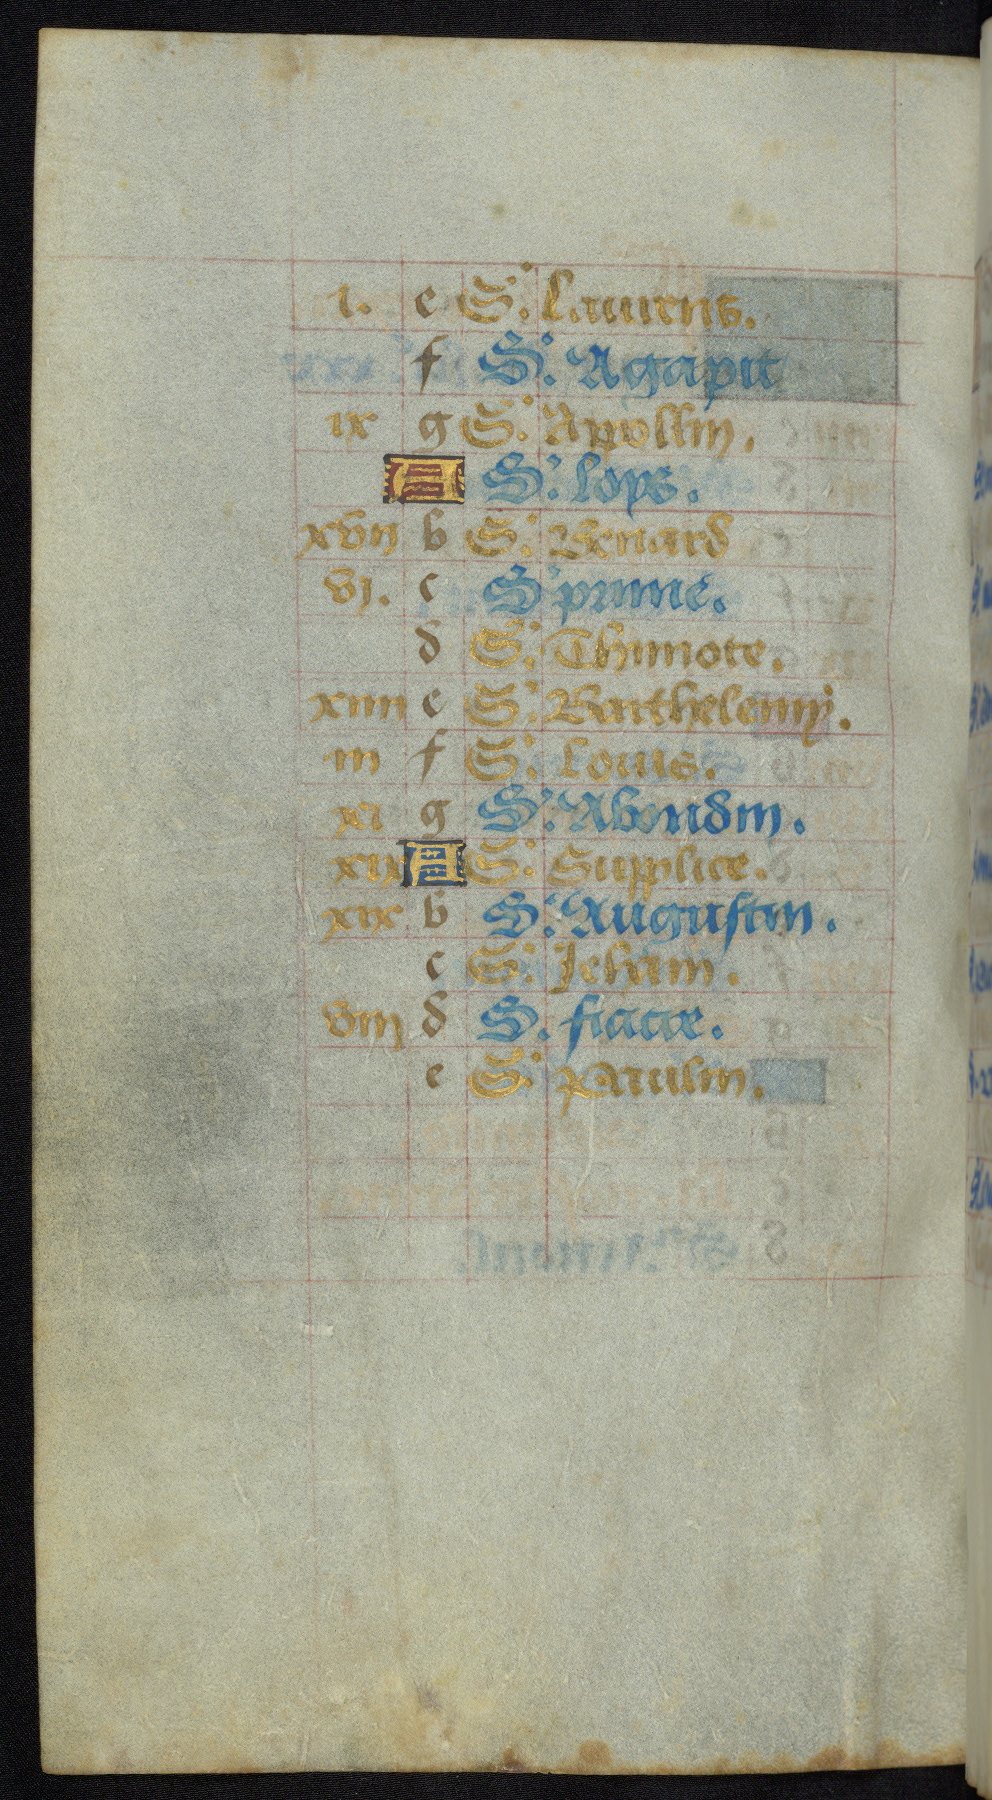 i. e S. Laurens.
f S. Agapit
ix g S. Apollin.
A S. Lops.
xvii b S. Benard
vi. c S prime.
d S. Thimote.
xiiii e S. Barthelemy.
iii f S. Louis.
xi g S. Abondin.
xix A S. Supplice.
xix b S. Augustin.
c S. Jeham.
viii d S. fiacre.
e S. Paulin.